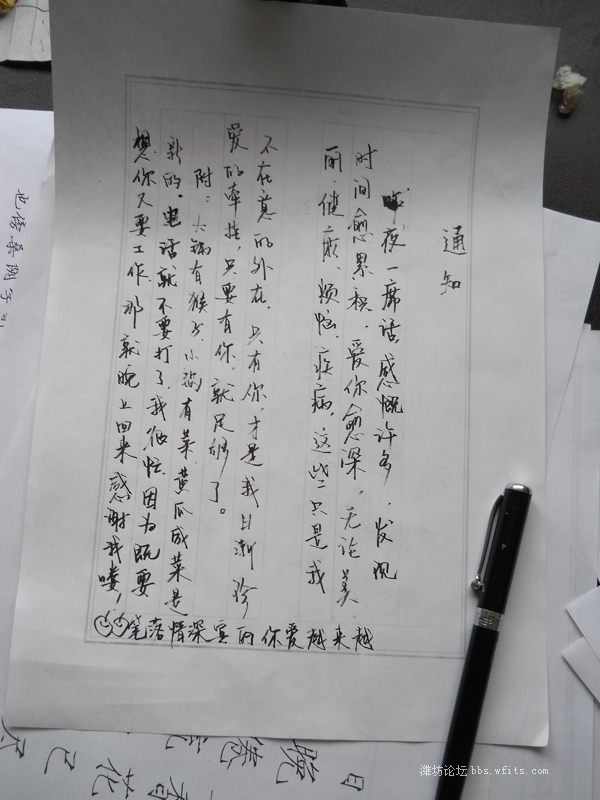 通知
昨夜一席话,感慨许多,发现
时间愈累积,爱你愈深,无论美
丽、健康、烦恼、疾病,这些只是我
不在意的外在,只有你,才是我日渐珍
爱的牵挂,只要有你,就足够了。
附:大锅有猴,小锅有菜,黄瓜咸菜是
新的。电话就不要打了,我很忙因为既要
想你又要工作,那就晚上回来感谢我喽!
越来越爱你的宾深情落笔
也傍桑阴学
日
晚
花
己
潍坊论坛 bbs.wfits.com